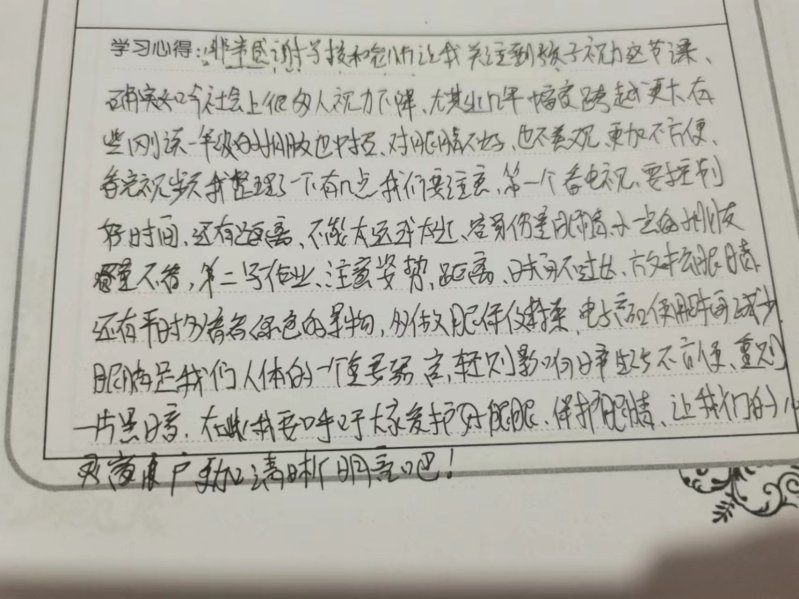 学习心得:非常感谢学校和老师让我关注到孩子视力这节课、
确实如今社会上很多人视力下降、尤其近几年幅度跨越更大、有
些刚读一年级的小朋友也中招、对眼睛不好、也不美观、更加不方便、
看完视频我整理了一下有几点我们要注意、第一个看电视、要控制
好时间、还有距离、不能太远或太近、容易伤害眼睛、小一点的小朋友
尽量不看、第二写作业、注意姿势、距离、时间不过长、方文持去眼睛
还有平时多看看绿色的景物,多做眼保仪健操、电子产品使用时间减少
眼睛是我们人体的一个重要器官,轻则影响日常生活不方便、重则
一片黑暗、在此我要呼吁大家爱护好眼睛、保护眼睛、让我们的
灵窗户更加清晰明亮吧!